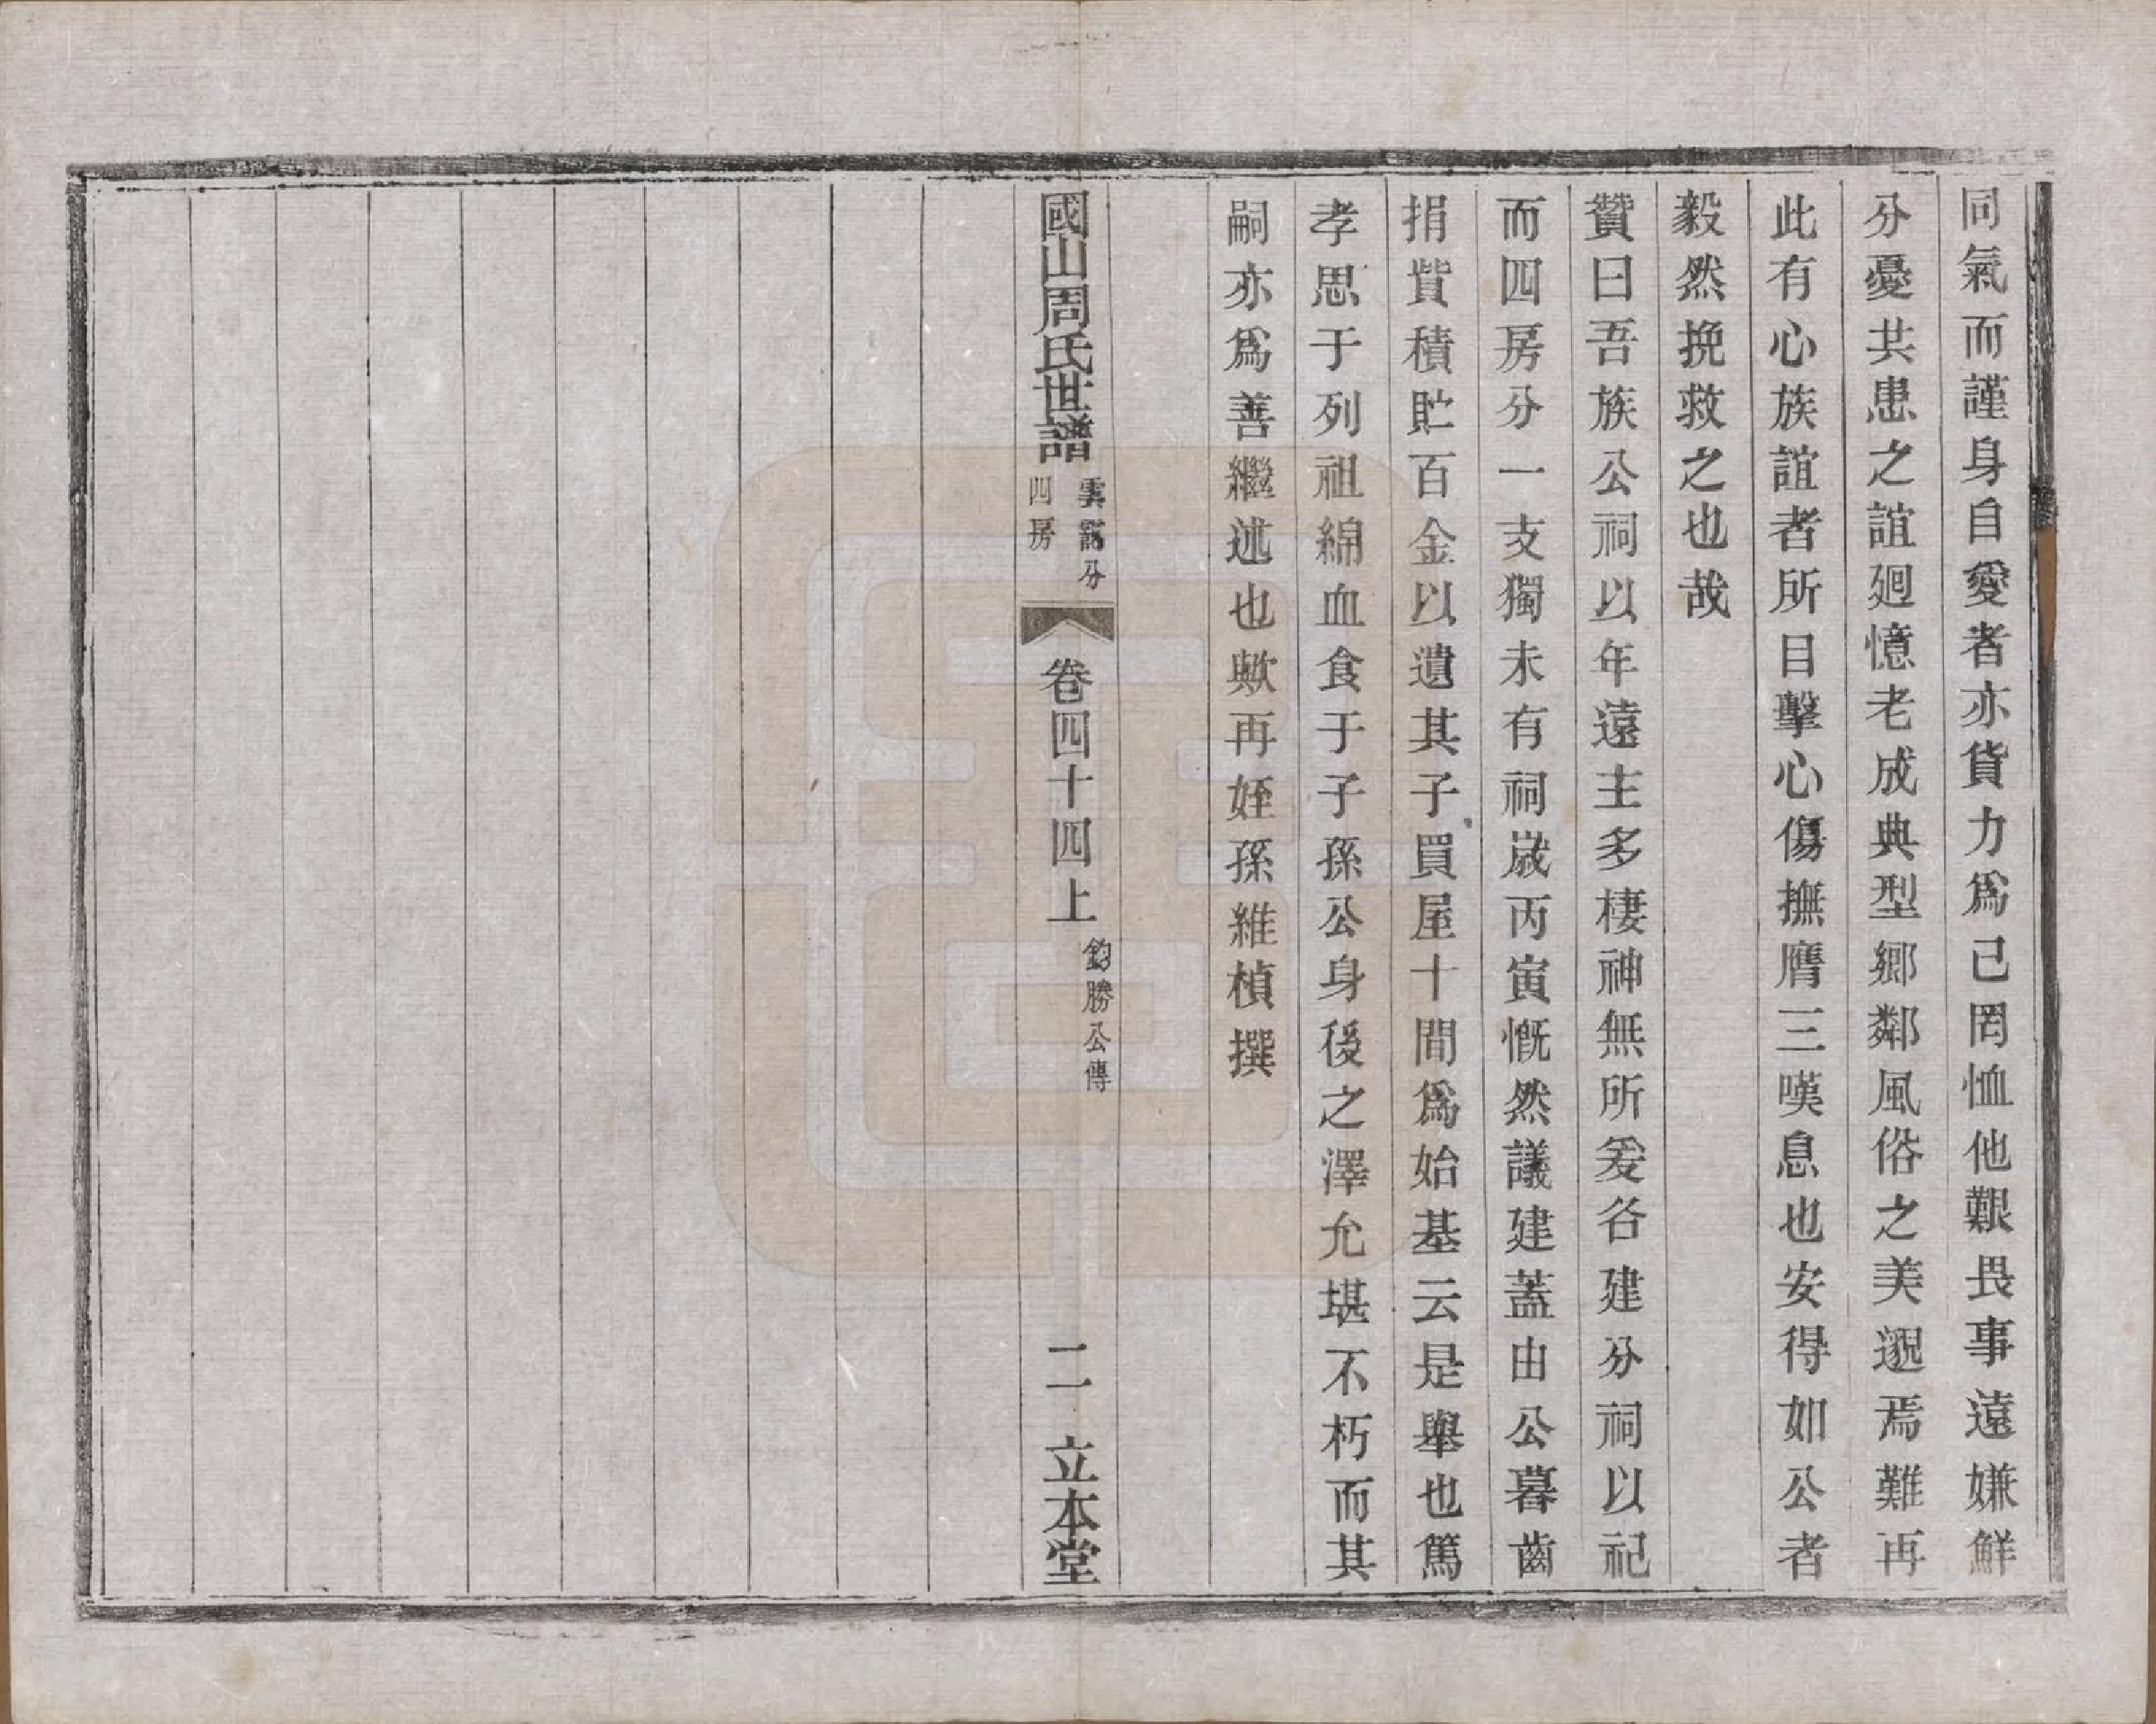 同氣而謹身自愛者亦貨力爲己罔恤他艱畏事遠嫌鮮
分憂共患之誼廻憶老成典型鄉鄰風俗之美邈焉難再
此有心族誼者所目擊心傷撫膺三嘆息也安得如公者
毅然挽救之也哉
贊曰吾族公祠以年遠主多棲神無所爰各建分祠以祀
而四房分一支獨未有祠歲丙寅慨然議建蓋由公暮齒
捐貲積貯百金以遺其子買屋十間爲始基云是舉也篤
孝思于列祖綿血食于子孫公身後之澤允堪不朽而其
嗣亦爲善繼述也歟再姪孫維楨撰
國山周氏世譜
分
四房
卷四十四上
鈞勝公傳
二
立本堂